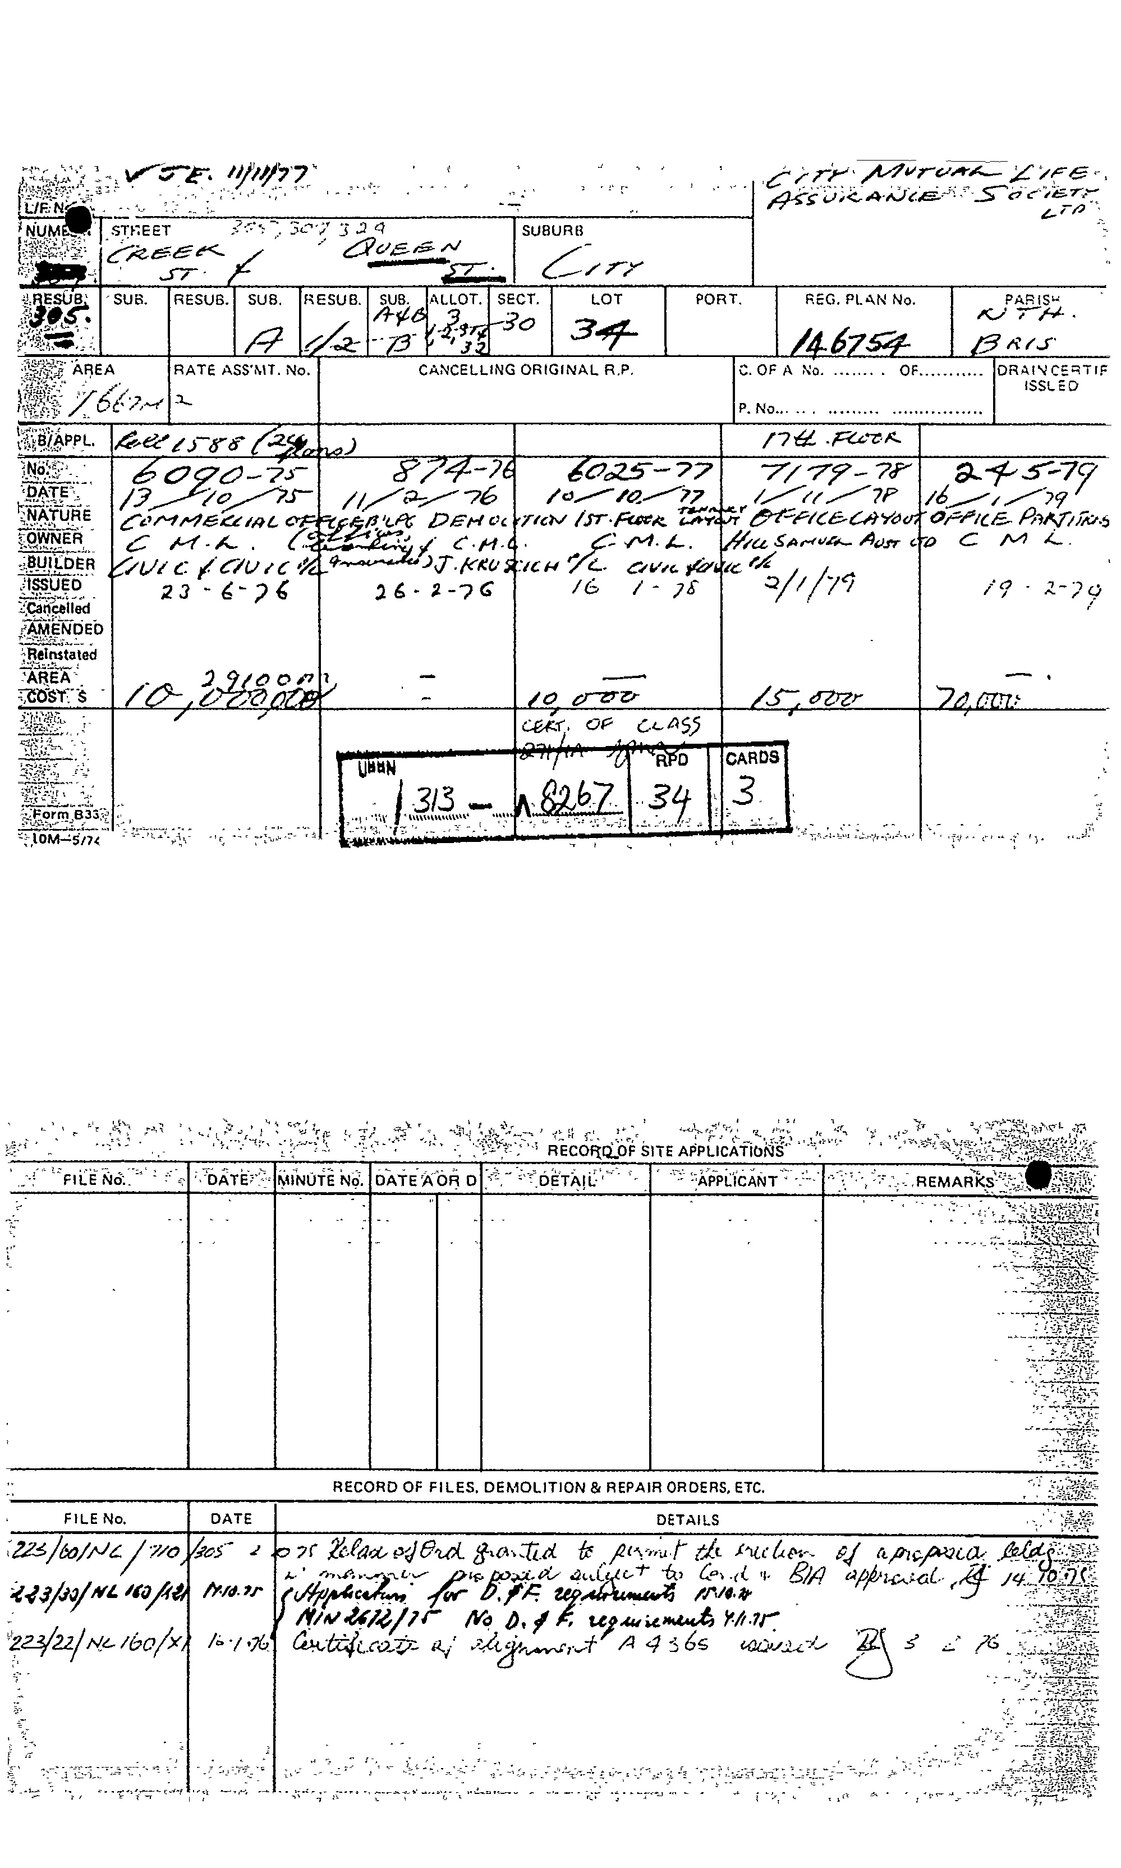 ✓ J E. 11/11/77
CITY MUTUAL LIFE
ASSURANCE SOCIETY
LTD
L/F No
NUMBER STREET 305, 307, 329 SUBURB
CREEK QUEEN CITY
ST. & ST.
RESUB. SUB. RESUB. SUB. RESUB. SUB. ALLOT. SECT. LOT PORT. REG. PLAN No. PARISH
305. A 1/2 A&B B 3 32 30 34 146754 NTH. BRIS
AREA RATE ASS'MT. No. CANCELLING ORIGINAL R.P. C. OF A No. ........ OF........... DRAIN CERTIF
ISSUED
1667M2
P. No.
B/APPL. Roll 1588 (24 plans) 17th. FLOOR
No. 6090-75 874-76 6025-77 7179-78 245-79
DATE 13/10/75 11/2/76 10/10/77 1/11/78 16/1/79
NATURE COMMERCIAL OFFICE B'LDG DEMOLITION 1ST. FLOOR TENANCY LAYOUT OFFICE LAYOUT OFFICE PARTITNS
OWNER C M.L. (Offices, C.M.L. C.M.L. HILL SAMUEL AUST LTD C M L.
BUILDER CIVIC & CIVIC P/L J. KRUSLICH P/L CIVIC & CIVIC P/L
ISSUED 23-6-76 26-2-76 16 1-78 2/1/79 19-2-79
Cancelled
AMENDED
Reinstated
AREA 29100m2 — — —.
COST $ 10,000,000 - 10,000 15,000 70,000
CERT. OF CLASS
UBBN RPD CARDS
1313 - 8267 34 3
Form B33
10M—5/74
RECORD OF SITE APPLICATIONS
FILE No. DATE MINUTE No. DATE A OR D DETAIL APPLICANT REMARKS
RECORD OF FILES, DEMOLITION & REPAIR ORDERS, ETC.
FILE No. DATE DETAILS
223/60/NL/710/305 2 10 75 Relax of Ord granted to permit the erection of a proposed bldg
in manner proposed subject to Cond & BIA approval 14.10.75
223/30/NL160/ 14.10.75 Application for D. & F. requirements 15.10.75
MIN 2672/75 No D. & F. requirements 4.11.75.
223/22/NL160/X1 16.1.76 Certificate of alignment A 4365 issued 3 2 76